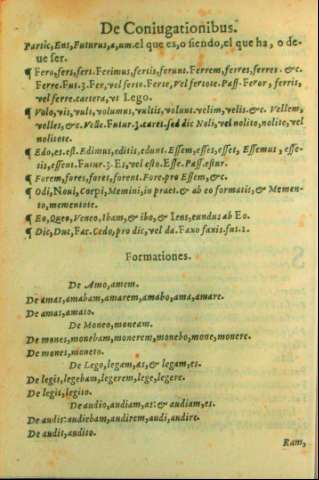 De Coniugationibus.
Partic, Ens, Futurus, a, um. el que es, o siendo, el que ha, o de-
ue ser.
¶ Fero, fers, fert. Ferimus, fertis, ferunt. Ferrem, ferres, ferret. &c.
Ferre. Fut. 3. Fer, vel ferto. Ferte, Vel fertote. Pass. Feror, ferris,
vel ferre. cætera, vt Lego.
¶ Volo, vis, vult, volumus, vultis, volunt. velim, velis. &c. Vellem,
velles, &c. Velle. Futur. 3. caret. sed dic Noli, vel nolito, nolite, vel
nolitote.
¶ Edo, es. est. Edimus, editis, edunt. Essem, esses, esset, Essemus, esse-
tis, essent. Futur. 3. Es, vel esto. Esse. Pass. estur.
¶ Forem, fores, foret, forent. Fore. pro Essem, &c.
¶ Odi, Noui, Cœpi, Memini, in præt. & ab eo formatis, & Memen-
to, mementote.
¶ Eo, Queo, Veneo, Ibam, & ibo, & Iens, eundus ab Eo.
¶ Dic, Duc, Fac. Cedo, pro dic, vel da. Faxo faxis. fut. 2.
Formationes.
De Amo, amem.
De amas, amabam, amarem, amabo, ama, amare.
De amat, amato.
De Moneo, moneam.
De mones, monebam, monerem, monebo, mone, monere.
De monet, moneto.
De Lego, legam, as, & legam, es.
De legis, legebam, legerem, lege, legere.
De legit, legito.
De audio, audiam, as: & audiam, es.
De audis: audiebam, audirem, audi, audire.
De audit, audito.
Ram,